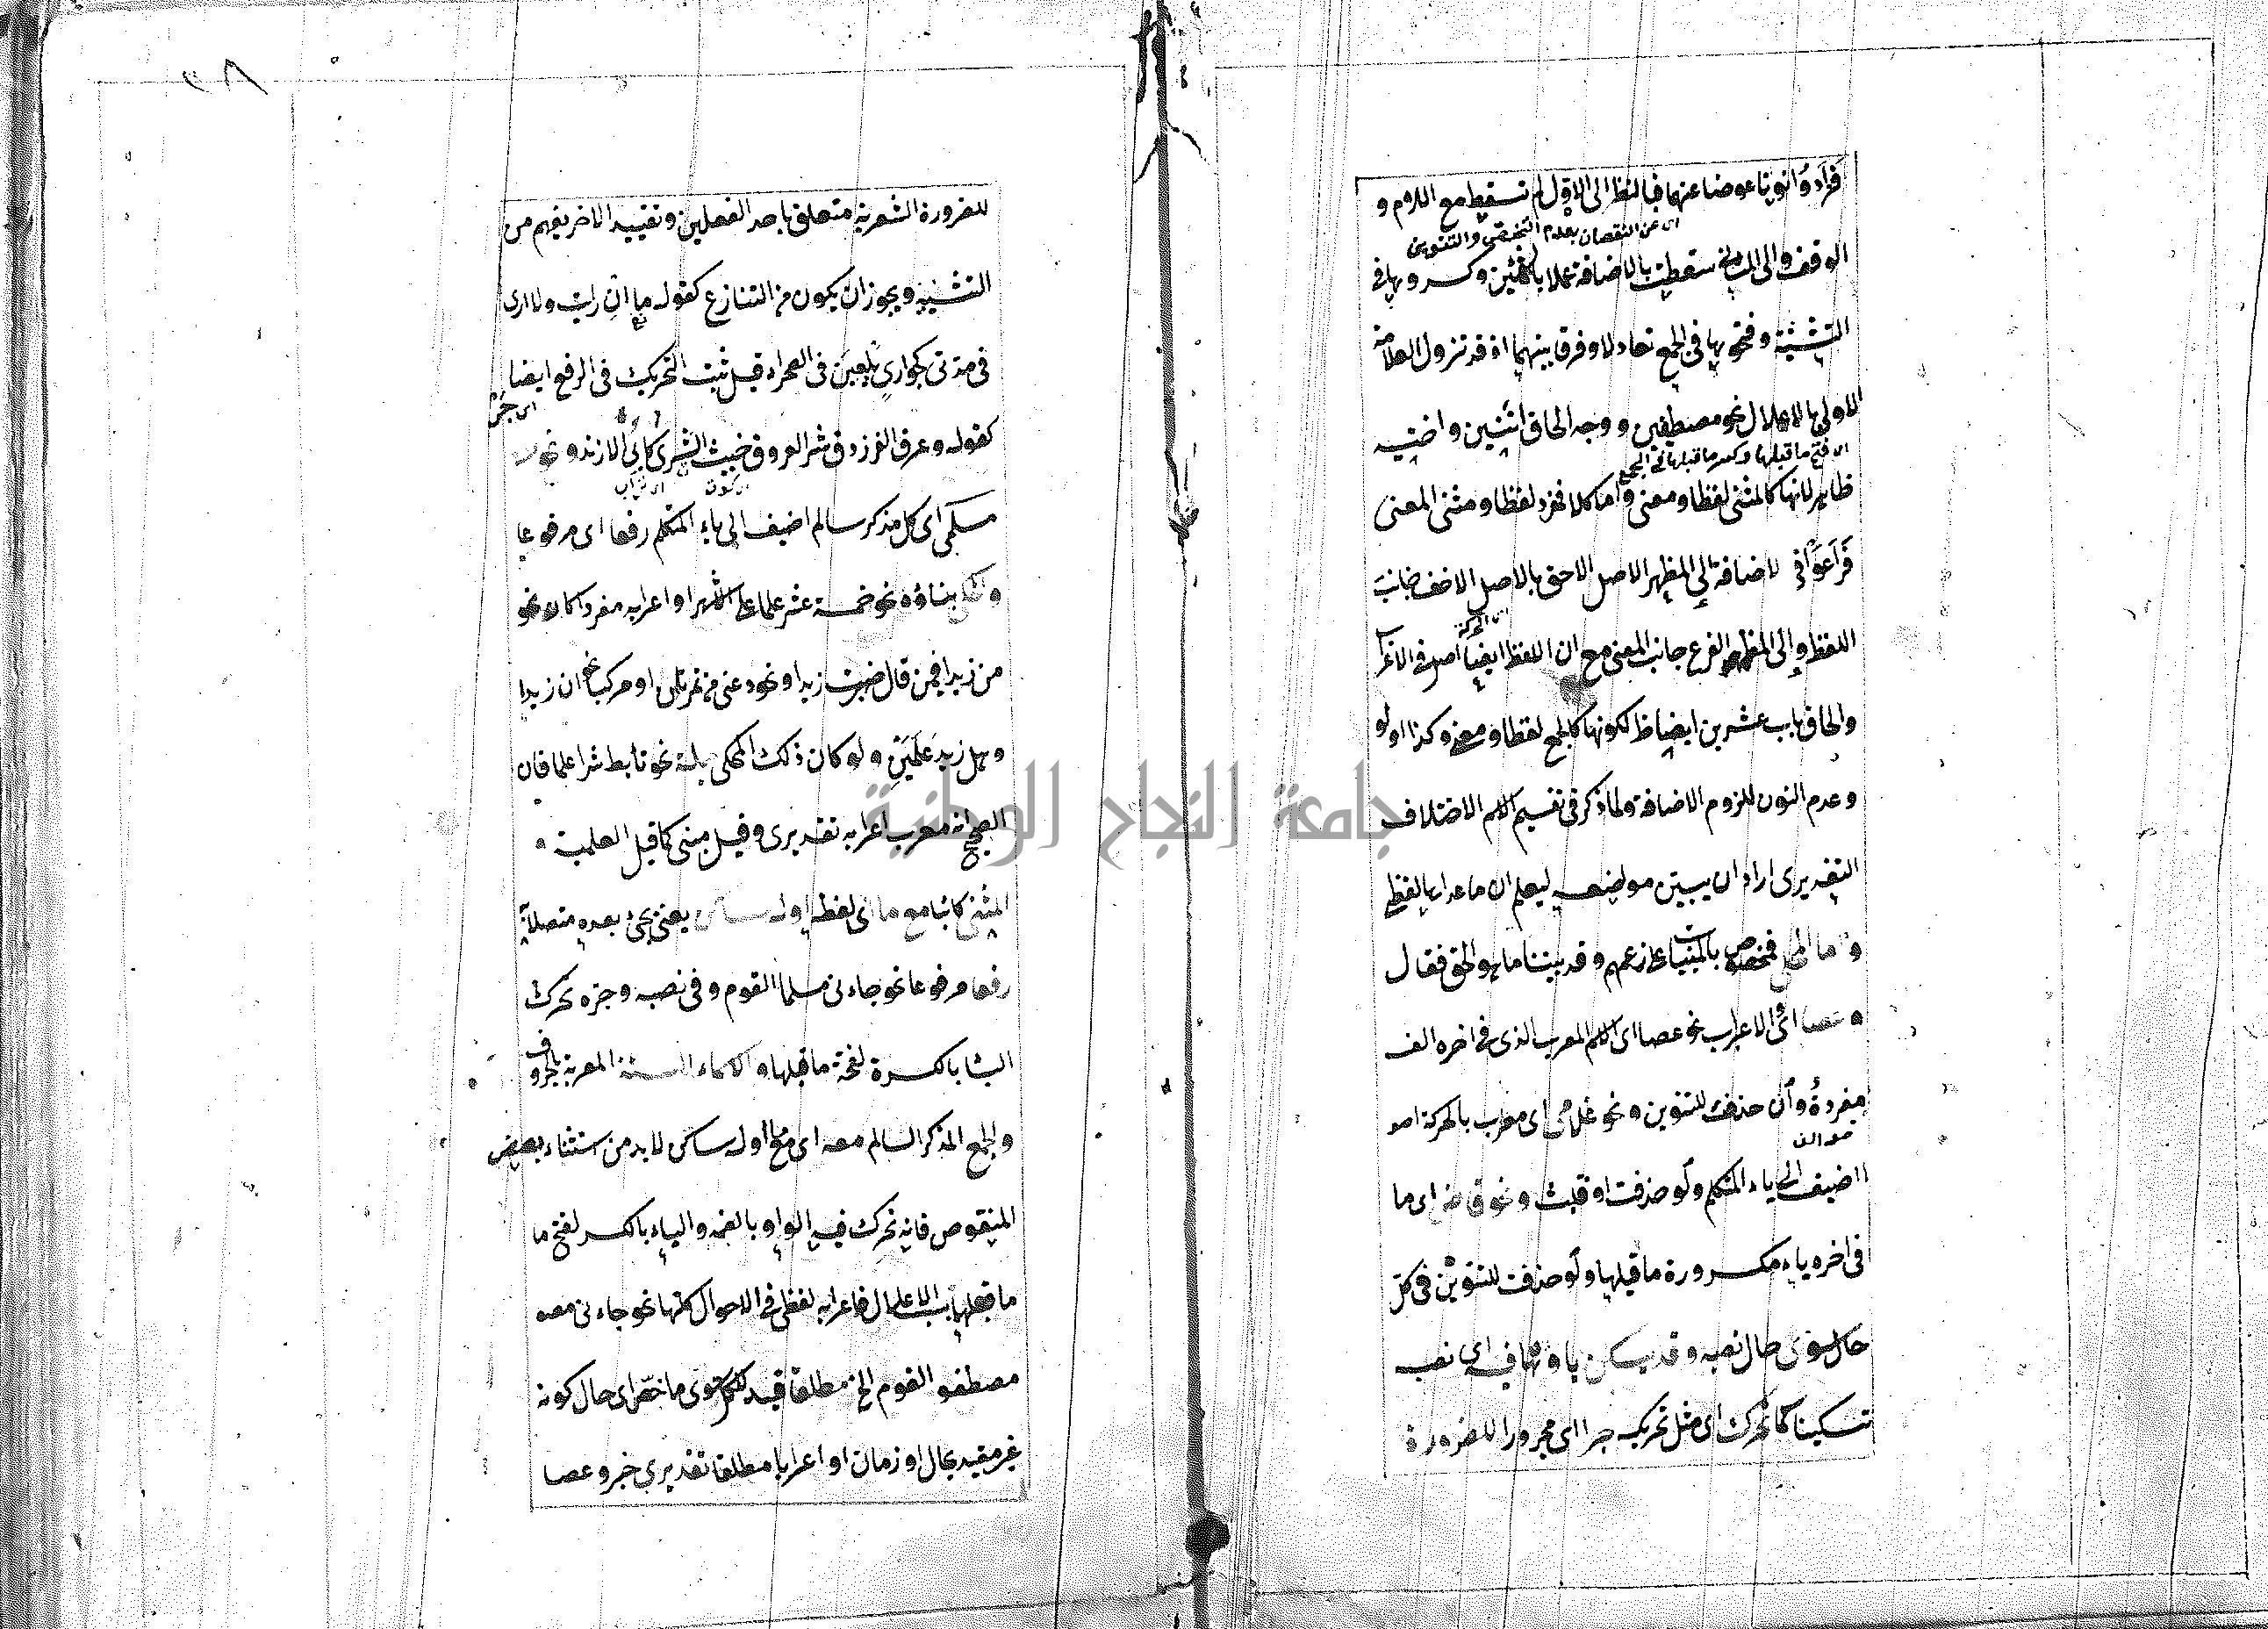 فزادوا نونا عوضا عنهما فبالنظر الى الاول لم تسقط مع اللام و
اى عن النقصان بعدم التخصيص والتنوين
الوقف والى الثانى سقطت بالاضافة عملا بالجهتين وكسروها فى
التثنية وفتحوها فى الجمع تعادلا وفرقا بينهما اذ قد تزول العلامة
الاولى بالاعلال نحو مصطفين ووجه الحاق اثنين واختيه
اى فتح ما قبلها وكسر ما قبلها فى الجمع
ظاهر لانها كالمثنى لفظا ومعنى واما كلا فمفرد لفظا ومثنى المعنى
فراعوا فى الاضافة الى المظهر الاصل الاحق بالاصل الاخف جانب
اى الحركة
اللفظ والى المضمر الفرع جانب المعنى مع ان اللفظ ايضا اصل فى الاعراب
والحاق باب عشرين ايضا ظ لكونها كالجمع لفظا ومعنى وكذا اولو
وعدم النون للزوم الاضافة ولما ذكر فى تقسيم الاسم الاختلاف
التقديرى اراد ان يبين مواضعه ليعلم ان ما عداها لفظى
واما المحلى فمختص بالمبنيات على زعمهم وقد بينا ما هو الحق فقال
و عصا اى والاعراب نحو عصا اى الاسم المعرب الذى فى اخره الف
مفردة وان حذفت للتنوين ونحو غلامى اى معرب بالحركة
اضيف الى ياء المتكلم ولو حذفت او قلبت ونحو قاض اى ما
فى اخره ياء مكسورة ما قبلها ولو حذفت للتنوين فى كل
حال سوى حال نصبه وقد يسكن ياؤهما فيه اى نصبه
تسكينا كما تحرك اى مثل تحريكه جرا اى مجرورا للضرورة
٢٨
للضرورة الشعرية متعلق باحد الفعلين وتقييد الاخر يفهم من
التشبيه ويجوز ان يكون من التنازع كقوله ما ان رايت ولا ارى
فى مدتى كجوارى يلعبن فى الصحراء قيل ثبت التحريك فى الرفع ايضا
كقوله وعرق الفرزدق شر العروق خبيث الثرى كابى الازند ونحو
مسلمى اى كل مذكر سالم اضيف الى ياء المتكلم رفعا اى مرفوعا
بناؤه نحو خمسة عشر علما على الاشهر او اعرابه مفردا كان نحو
من زيدا فيمن قال ضربت زيدا ونحو دعنى من تمرتان او مركبا نحو ان زيدا
وهل زيد علمين ولو كان ذلك المحكى جملة نحو تأبط شرا علما فان
الصحيح انه معرب اعرابه تقديرى وقيل مبنى كما قبل العلمية
المثنى كائنا مع ما اى لفظ اوله ساكن يعنى يجئ بعده متصلا به
رفعا مرفوعا نحو جاءنى مسلما القوم وفى نصبه وجره تحرك
الياء بالكسرة لفتحة ما قبلها والاسماء الستة المعربة بالحروف
والجمع المذكر السالم معه اى مع ما اوله ساكن لا بد من استثناء بعض
المنقوص فانه تحرك فيه الواو بالضمة والياء بالكسر لفتح ما
ما قبلها باب الاعلال فاعرابه لفظى فى الاحوال كلها نحو جاءنى
مصطفو القوم الخ مطلقا قيد للكل سوى ما خص اى حال كونه
غير مقيد بحال او زمان او اعرابا مطلقا تقديرى خبر وعصا
جامعة النجاح الوطنية